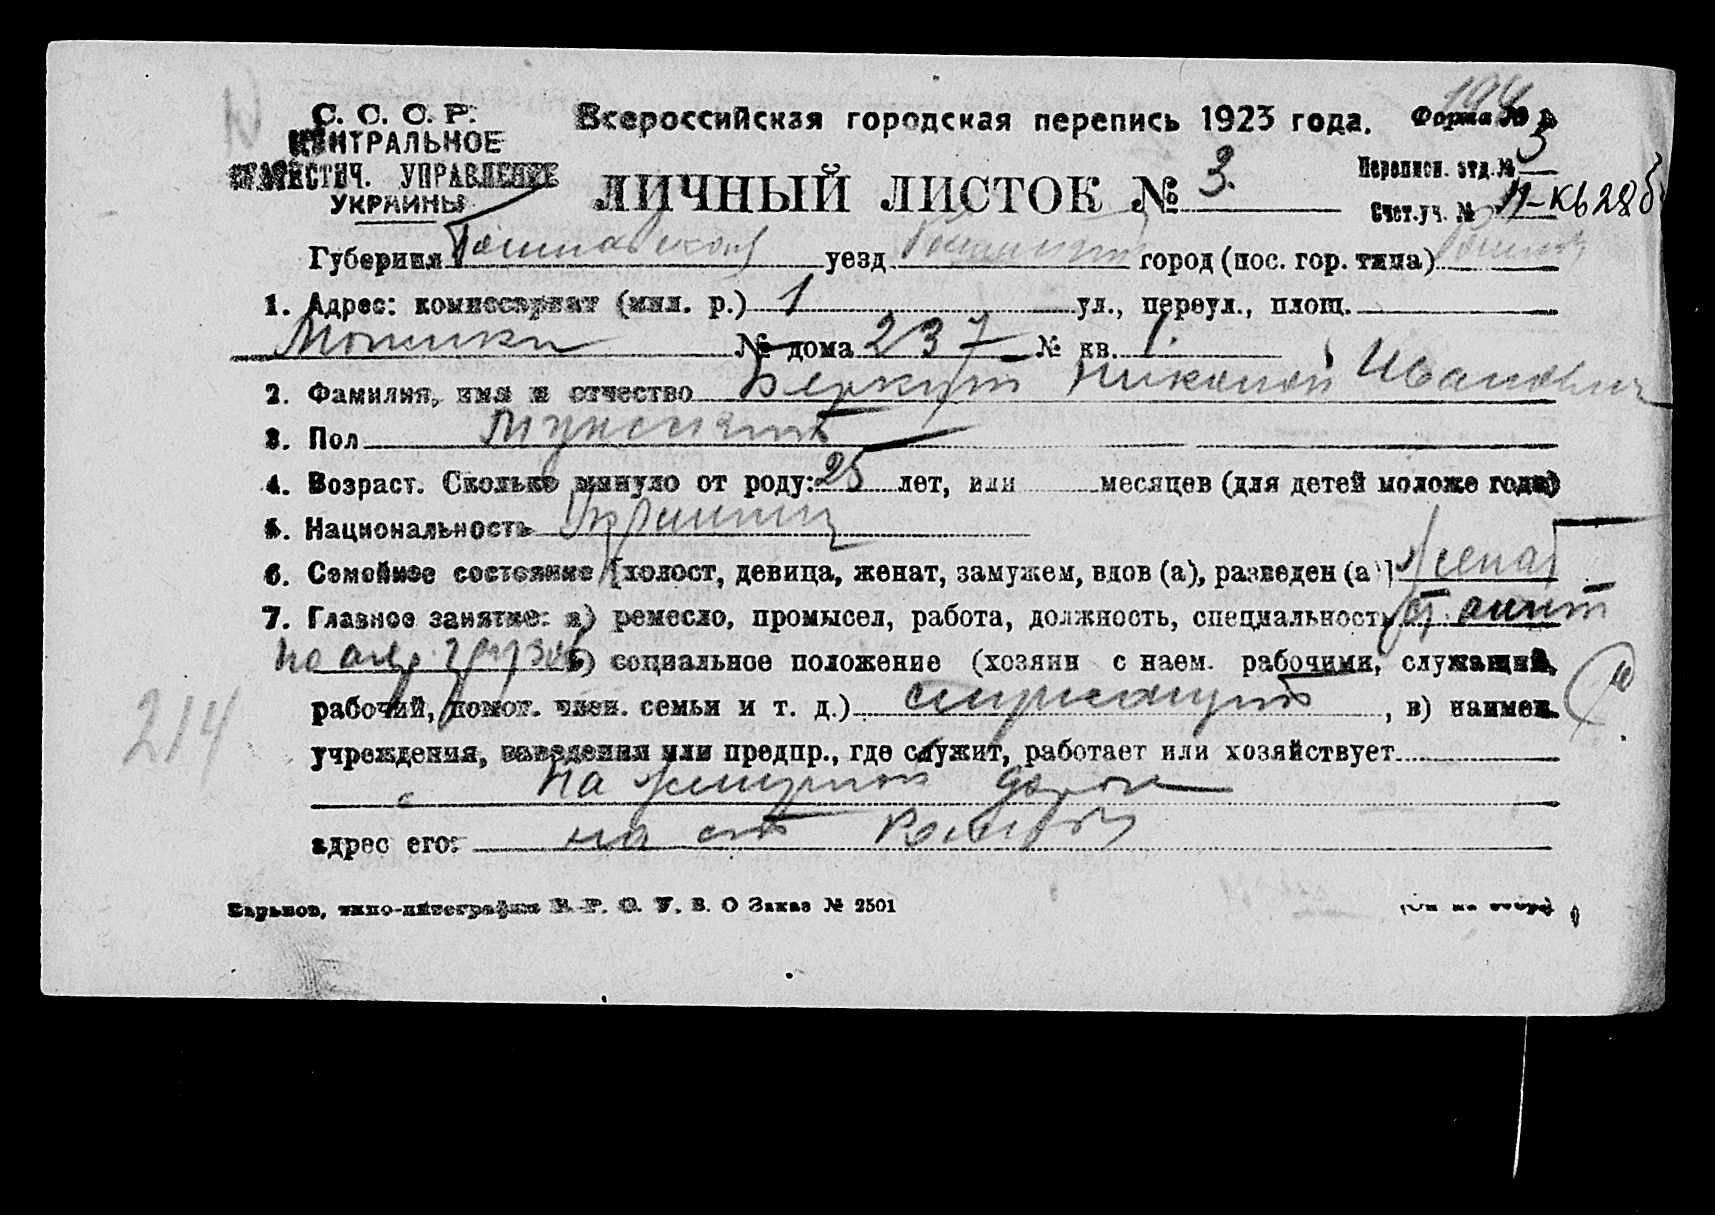 С. С. С. Р.
ЦЕНТРАЛЬНОЕ
СТАТИСТИЧ. УПРАВЛЕНИЕ
УКРАИНЫ
Всероссийская городская перепись 1923 года.
Форма №
ЛИЧНЫЙ ЛИСТОК № 3.
Переписн. отд. № 3
Счет. уч. №
Губерния уезд город (пос. гор. типа)
1. Адрес: комиссариат (мил. р.) 1 ул., переул., площ.
№ дома 237 № кв. 1.
2. Фамилия, имя и отчество Беркут Николай Иванович
3. Пол мужской
4. Возраст. Сколько минуло от роду: 25 лет, или месяцев (для детей моложе года)
5. Национальность Украинец
6. Семейное состояние [холост, девица, женат, замужем, вдов (а), разведен (а)] женат
7. Главное занятие: а) ремесло, промысел, работа, должность, специальность агент
по б) социальное положение (хозяин с наем. рабочими, служащий,
214
рабочий, помог. член. семьи и т. д.) служащий, в) наимен.
учреждения, заведения или предпр., где служит, работает или хозяйствует
на дороге
адрес его: на ст
Харьков, типо-литография В. Р. С. У. В. О Заказ № 2501